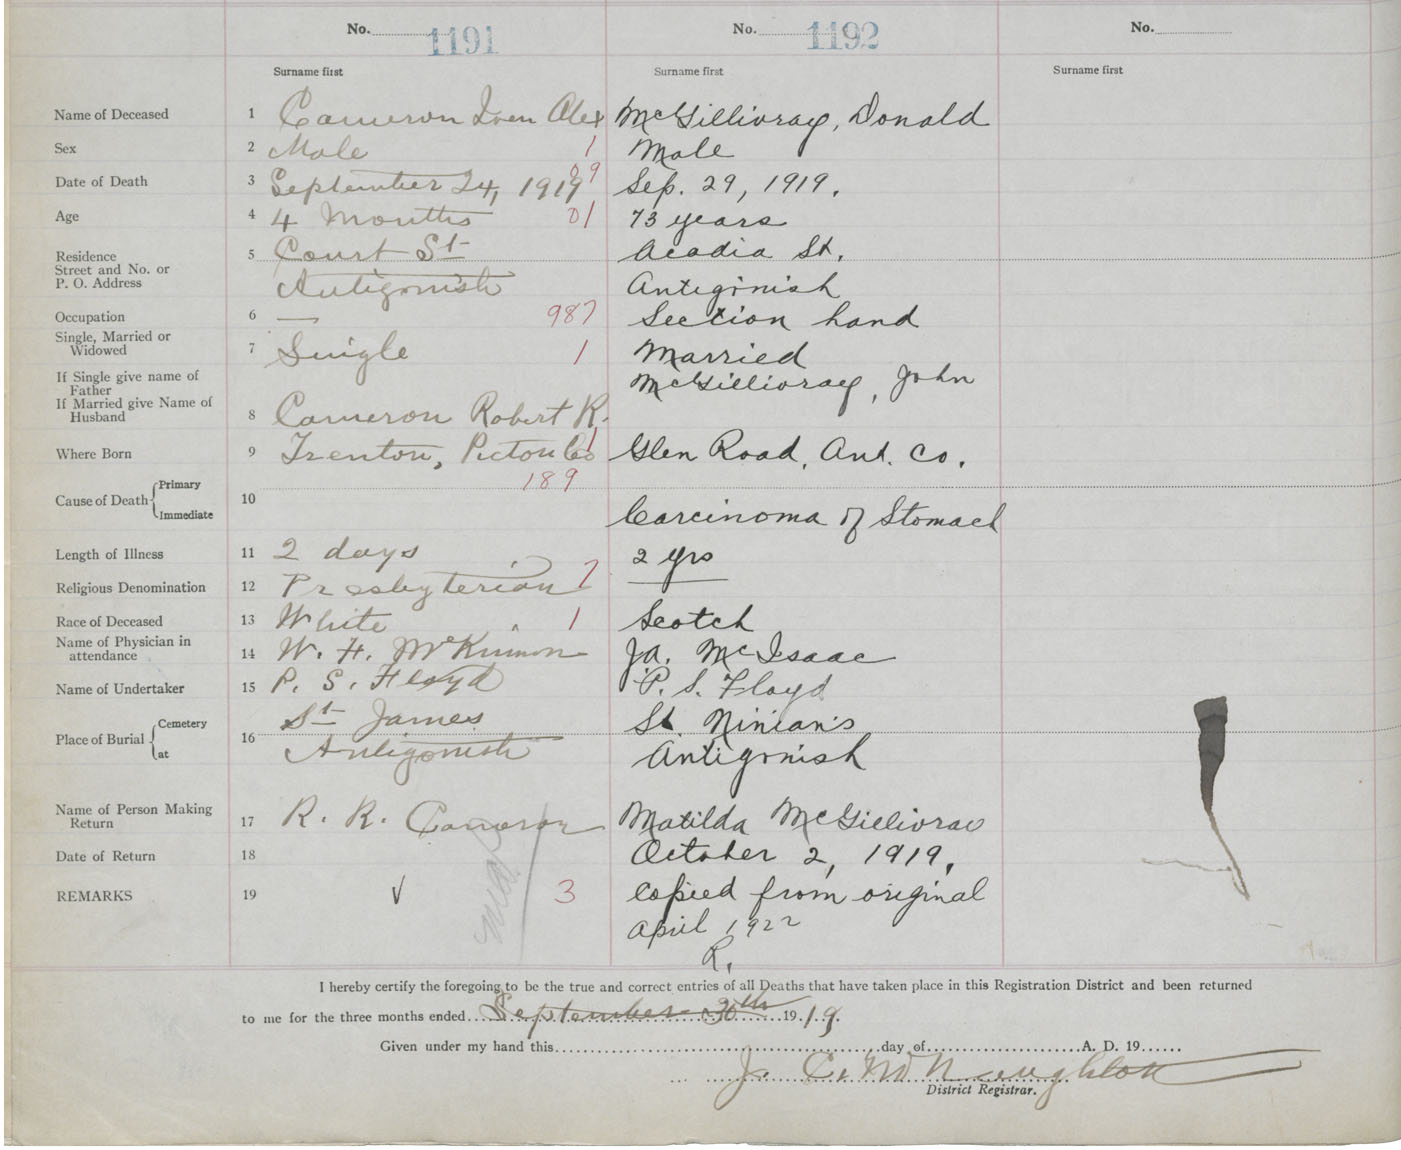 No. 1191
No. 1192
No.
Surname first
Surname first
Surname first
Name of Deceased 1 Cameron Iven Alex McGillivray, Donald
Sex 2 Male 1 Male
Date of Death 3 September 24, 1919 09 Sep. 29, 1919.
Age 4 4 Months 01 73 years
Residence 5 Court St Acadia St.
Street and No. or
P. O. Address Antigonish Antigonish
Occupation 6 — 987 Section hand
Single, Married or
Widowed 7 Single 1 Married
If Single give name of
Father McGillivray, John
If Married give Name of
Husband 8 Cameron Robert R.
Where Born 9 Trenton, Pictou Co 1 Glen Road, Ant. Co.
189
Cause of Death Primary
Immediate 10 Carcinoma of Stomach
Length of Illness 11 2 days 2 yrs
Religious Denomination 12 Presbyterian 7
Race of Deceased 13 White 1 Scotch
Name of Physician in
attendance 14 W. H. McKinnon J.A. McIsaac
Name of Undertaker 15 P. S. Floyd P. S. Floyd
Place of Burial Cemetery 16 St James St. Ninian's
at Antigonish Antigonish
Name of Person Making
Return 17 R. R. Cameron Matilda McGillivray
Date of Return 18 October 2, 1919.
REMARKS 19 3 Copied from original
April 1922
R.
I hereby certify the foregoing to be the true and correct entries of all Deaths that have taken place in this Registration District and been returned
to me for the three months ended September 30th 1919.
Given under my hand this day of A. D. 19
J. C. McNaughton
District Registrar.